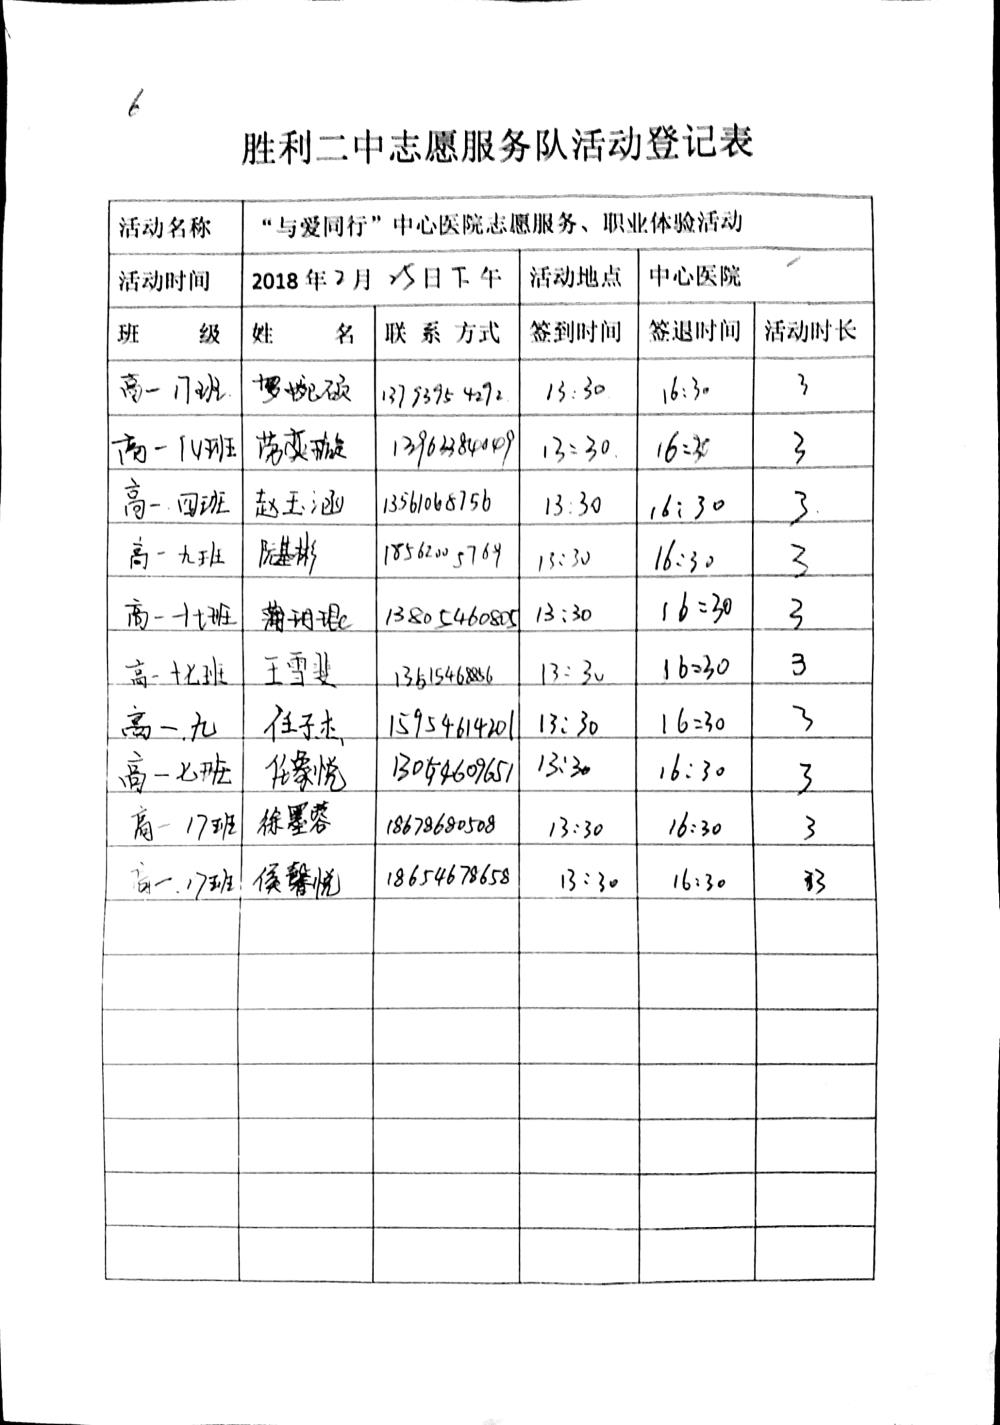 6
胜利二中志愿服务队活动登记表
活动名称 “与爱同行”中心医院志愿服务、职业体验活动
活动时间 2018年2月25日下午 活动地点 中心医院
班 级 姓 名 联系方式 签到时间 签退时间 活动时长
高一17班 罗婉硕 13793954292 13:30 16:30 3
高一14班 13:30 16:30 3
高一.四班 赵玉涵 13561068756 13:30 16:30 3
高一九班 阮基彬 18562005764 13:30 16:30 3
高一十七班 蒲玥琨 13805460805 13:30 16:30 3
高一十七班 王雪斐 13:30 16:30 3
高一.九 任子杰 15954614201 13:30 16:30 3
高一七班 任豪悦 13054609651 13:30 16:30 3
高一17班 徐墨蓉 18678680508 13:30 16:30 3
高一.17班 侯馨悦 18654678658 13:30 16:30 3